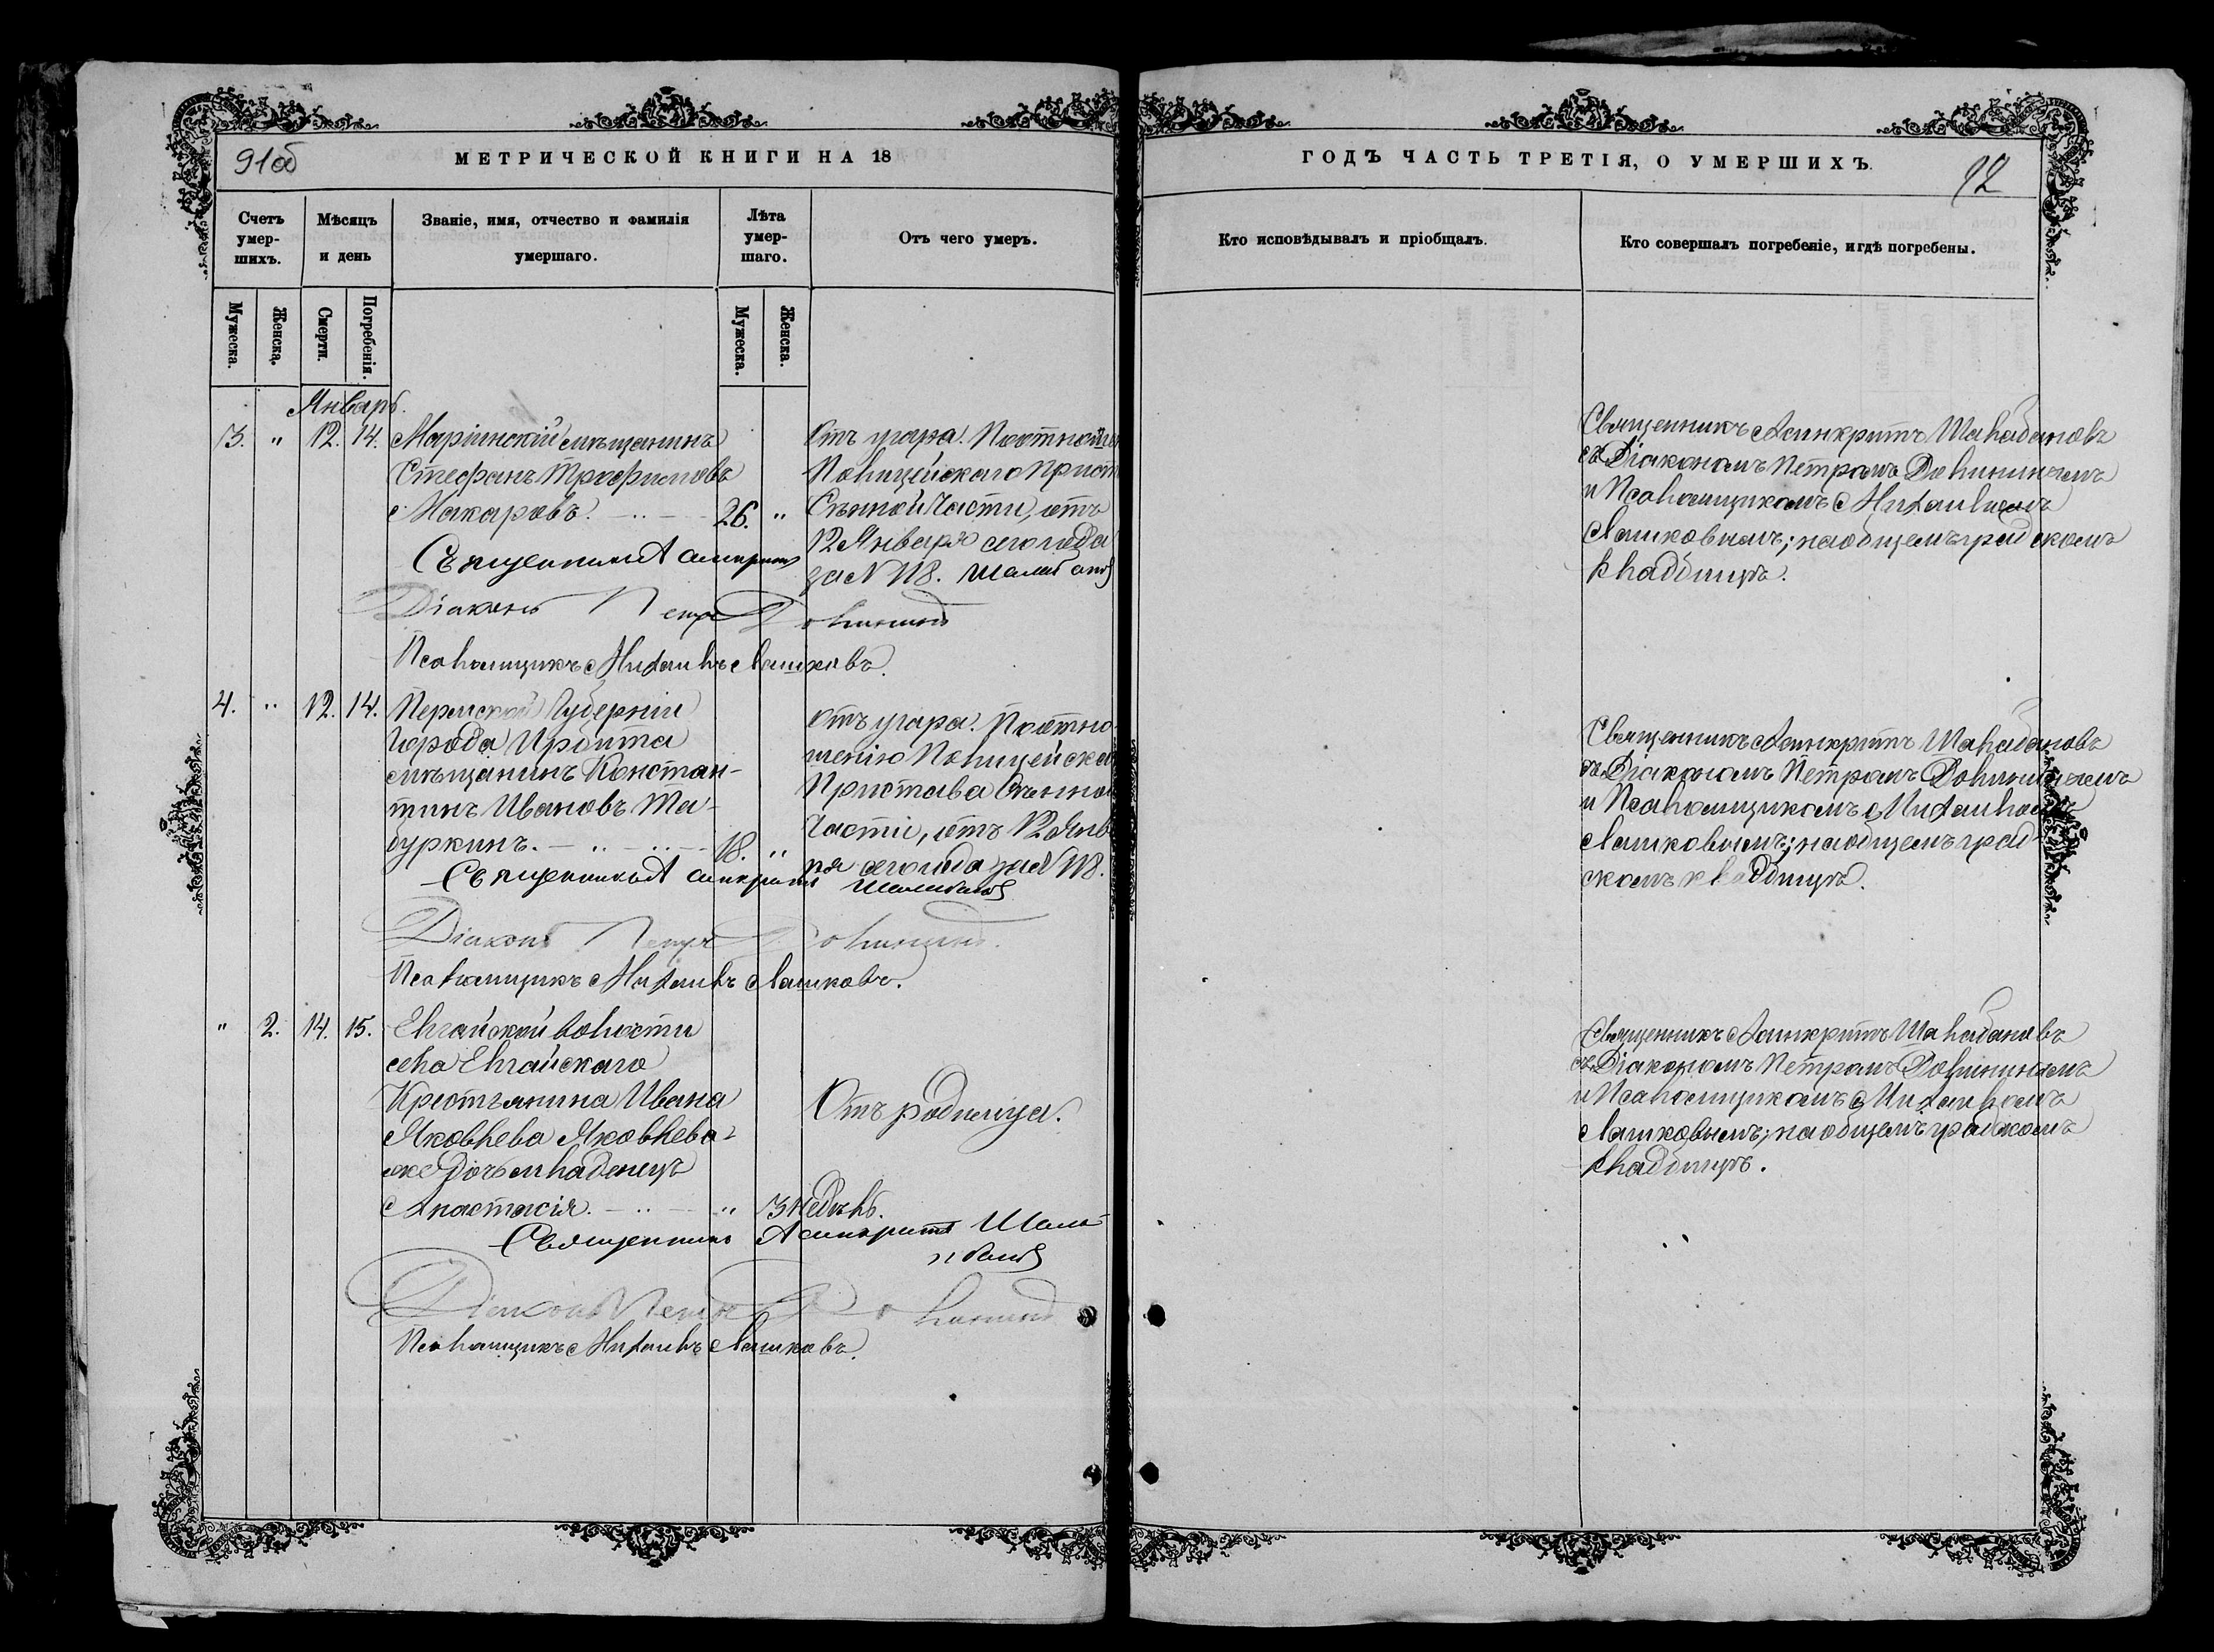 91об
МЕТРИЧЕСКОЙ КНИГИ НА 18
Счетъ умер-шихъ.
Мѣсяцъ и день
Званіе, имя, отчество и фамилія умершаго.
Лѣта умер-шаго.
Отъ чего умеръ.
Мужеска.
Женска.
Смерти.
Погребенія.
Мужеска.
Женска.
Январь.
3. " 12. 14. Маріинскій мѣщанинъ
Стефанъ Трофимовъ
Макаровъ. 26. "
Отъ угара. По отноше
Полицейскаго Прист
Сѣнной Части, отъ
12 Января сего года
за № 118.
Священникъ Асинкритъ Шалабановъ
Діаконъ Петръ Долининъ
Псаломщикъ Михаилъ Лашковъ.
4. " 12. 14. Пермской Губерніи
города Ирбита
мѣщанинъ Констан-
тинъ Ивановъ Та-
буркинъ. 18. "
отъ угара. По отно-
шенію Полицейска
Пристава Сѣнной
Части, отъ 12 Янв
ря сего года за № 118.
Священникъ Асинкритъ Шалабановъ
Діаконъ Петръ Долининъ.
Псаломщикъ Михаилъ Лашковъ.
" 2. 14. 15. Елгайской волости
села Елгайскаго
Крестьянина Ивана
Яковлева Яковлева
дочь младенецъ
Анастасія. " 3 недѣль.
Отъ родимца.
Священникъ Асинкритъ Шала-
бановъ
Діаконъ Петръ Долининъ
Псаломщикъ Михаилъ Лашковъ.
ГОДЪ ЧАСТЬ ТРЕТІЯ, О УМЕРШИХЪ.
92
Кто исповѣдывалъ и пріобщалъ.
Кто совершалъ погребеніе, и гдѣ погребены.
Священникъ Асинкритъ Шалабановъ
съ Діакономъ Петромъ Долининымъ
и Псаломщикомъ Михаиломъ
Лашковымъ; на общемъ градскомъ
кладбищѣ.
Священникъ Асинкритъ Шалабановъ
съ Діакономъ Петромъ Долининымъ
и Псаломщикомъ Михаиломъ
Лашковымъ; на общемъ град-
скомъ кладбищѣ.
Священникъ Асинкритъ Шалабановъ
съ Діакономъ Петромъ Долининымъ
и Псаломщикомъ Михаиломъ
Лашковымъ; на общемъ градскомъ
кладбищѣ.